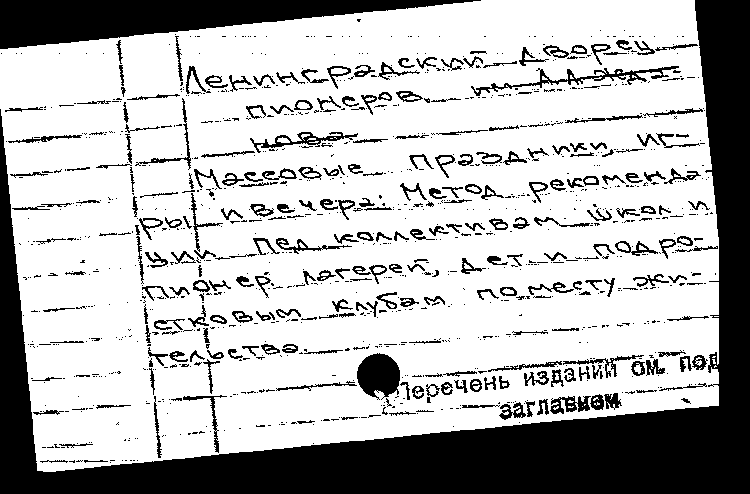 Ленинградский дворец
пионеров им. А.А. Жда-
нова
Массовые праздники, иг-
ры и вечера: Метод. рекоменда-
ции пед. коллективам школ и
пионер. лагерей, дет. и подро-
стковым клубам по месту жи-
тельства.
Перечень изданий см. под
заглавием